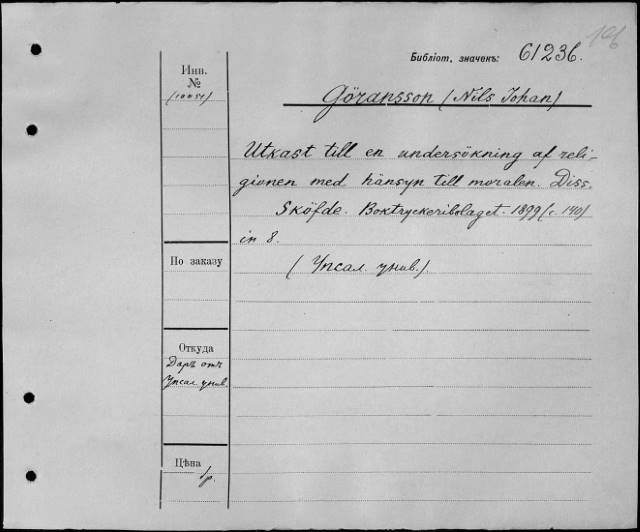 196
Библіот. значекъ: 61236.
Инв.
№
Göransson (Nils Johan)
Utkast till en undersökning af reli-
gionen med hänsyn till moralen. Diss.
Sköfde. Boktryckeribolaget. 1899 (с. 140)
in 8.
По заказу
(Упсал. унив.)
Откуда
Даръ отъ
Упсал. унив.
Цѣна
1р.